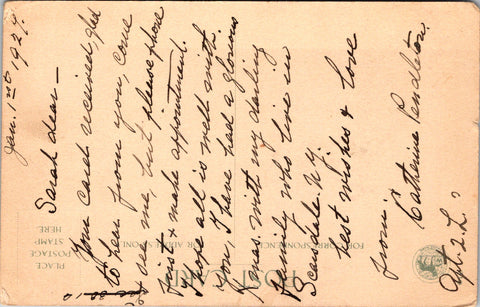 Jan. 1st 1929.
Sarah dear—
Your card received, glad
to hear from you, come
& see me, but please phone
first & make appointment.
I hope all is well with
you, I have had a glorious
Xmas with my darling
Family who live in
Scarsdale. N.Y.
best wishes & love
from.
Catherine Pendleton.
Apt. 2. L.
POST CARD
FOR CORRESPONDENCE
FOR ADDRESS ONLY
PLACE
POSTAGE
STAMP
HERE